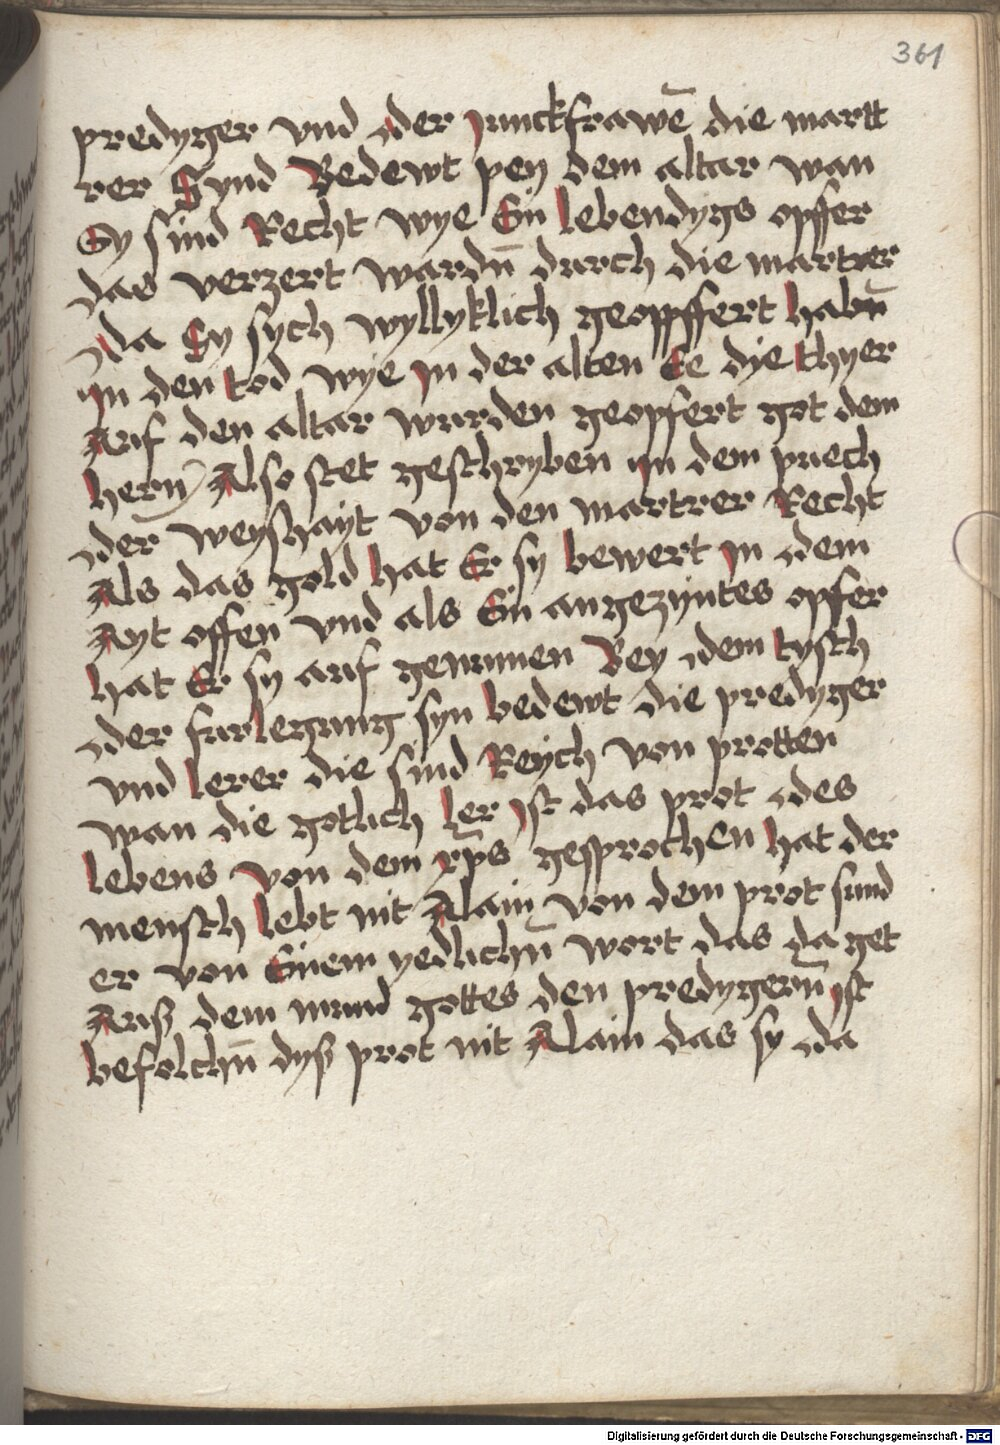 361
predyger vnd der Junckfrawē die martt
rer Synd Bedewt pey dem altar wan
Sy sind Recht wye Ein lebendygs opffer
das verzert wardn̄ durch die martrer
da Sy sych wyllyklich geopffert habn̄
In den tod wye In der alten Ee dye thyer
Auf den altar wurden geopfert got dem
hern Also stet geschryben Im dem puech
der weyshayt von den martrer Recht
Als das gold hat Er sy bewert In dem
Ayt offen vnd als Ein angezyntes opfer
hat Er sy auf genumen Bey dem tysch
der furlegung syn bedewt die predyger
vnd lerer die sind Reych von protten
wan die gotlich ler Ist das prot des
lebens von dem xp̄s gesprochen hat der
mensch lebt nit Alain von dem prot sund
er von Einem yedlichn̄ wort das da get
Auß dem mund gottes den predygern̄ Ist
befolchn̄ dyß prot nit Alain das sy da
Digitalisierung gefördert durch die Deutsche Forschungsgemeinschaft - DFG